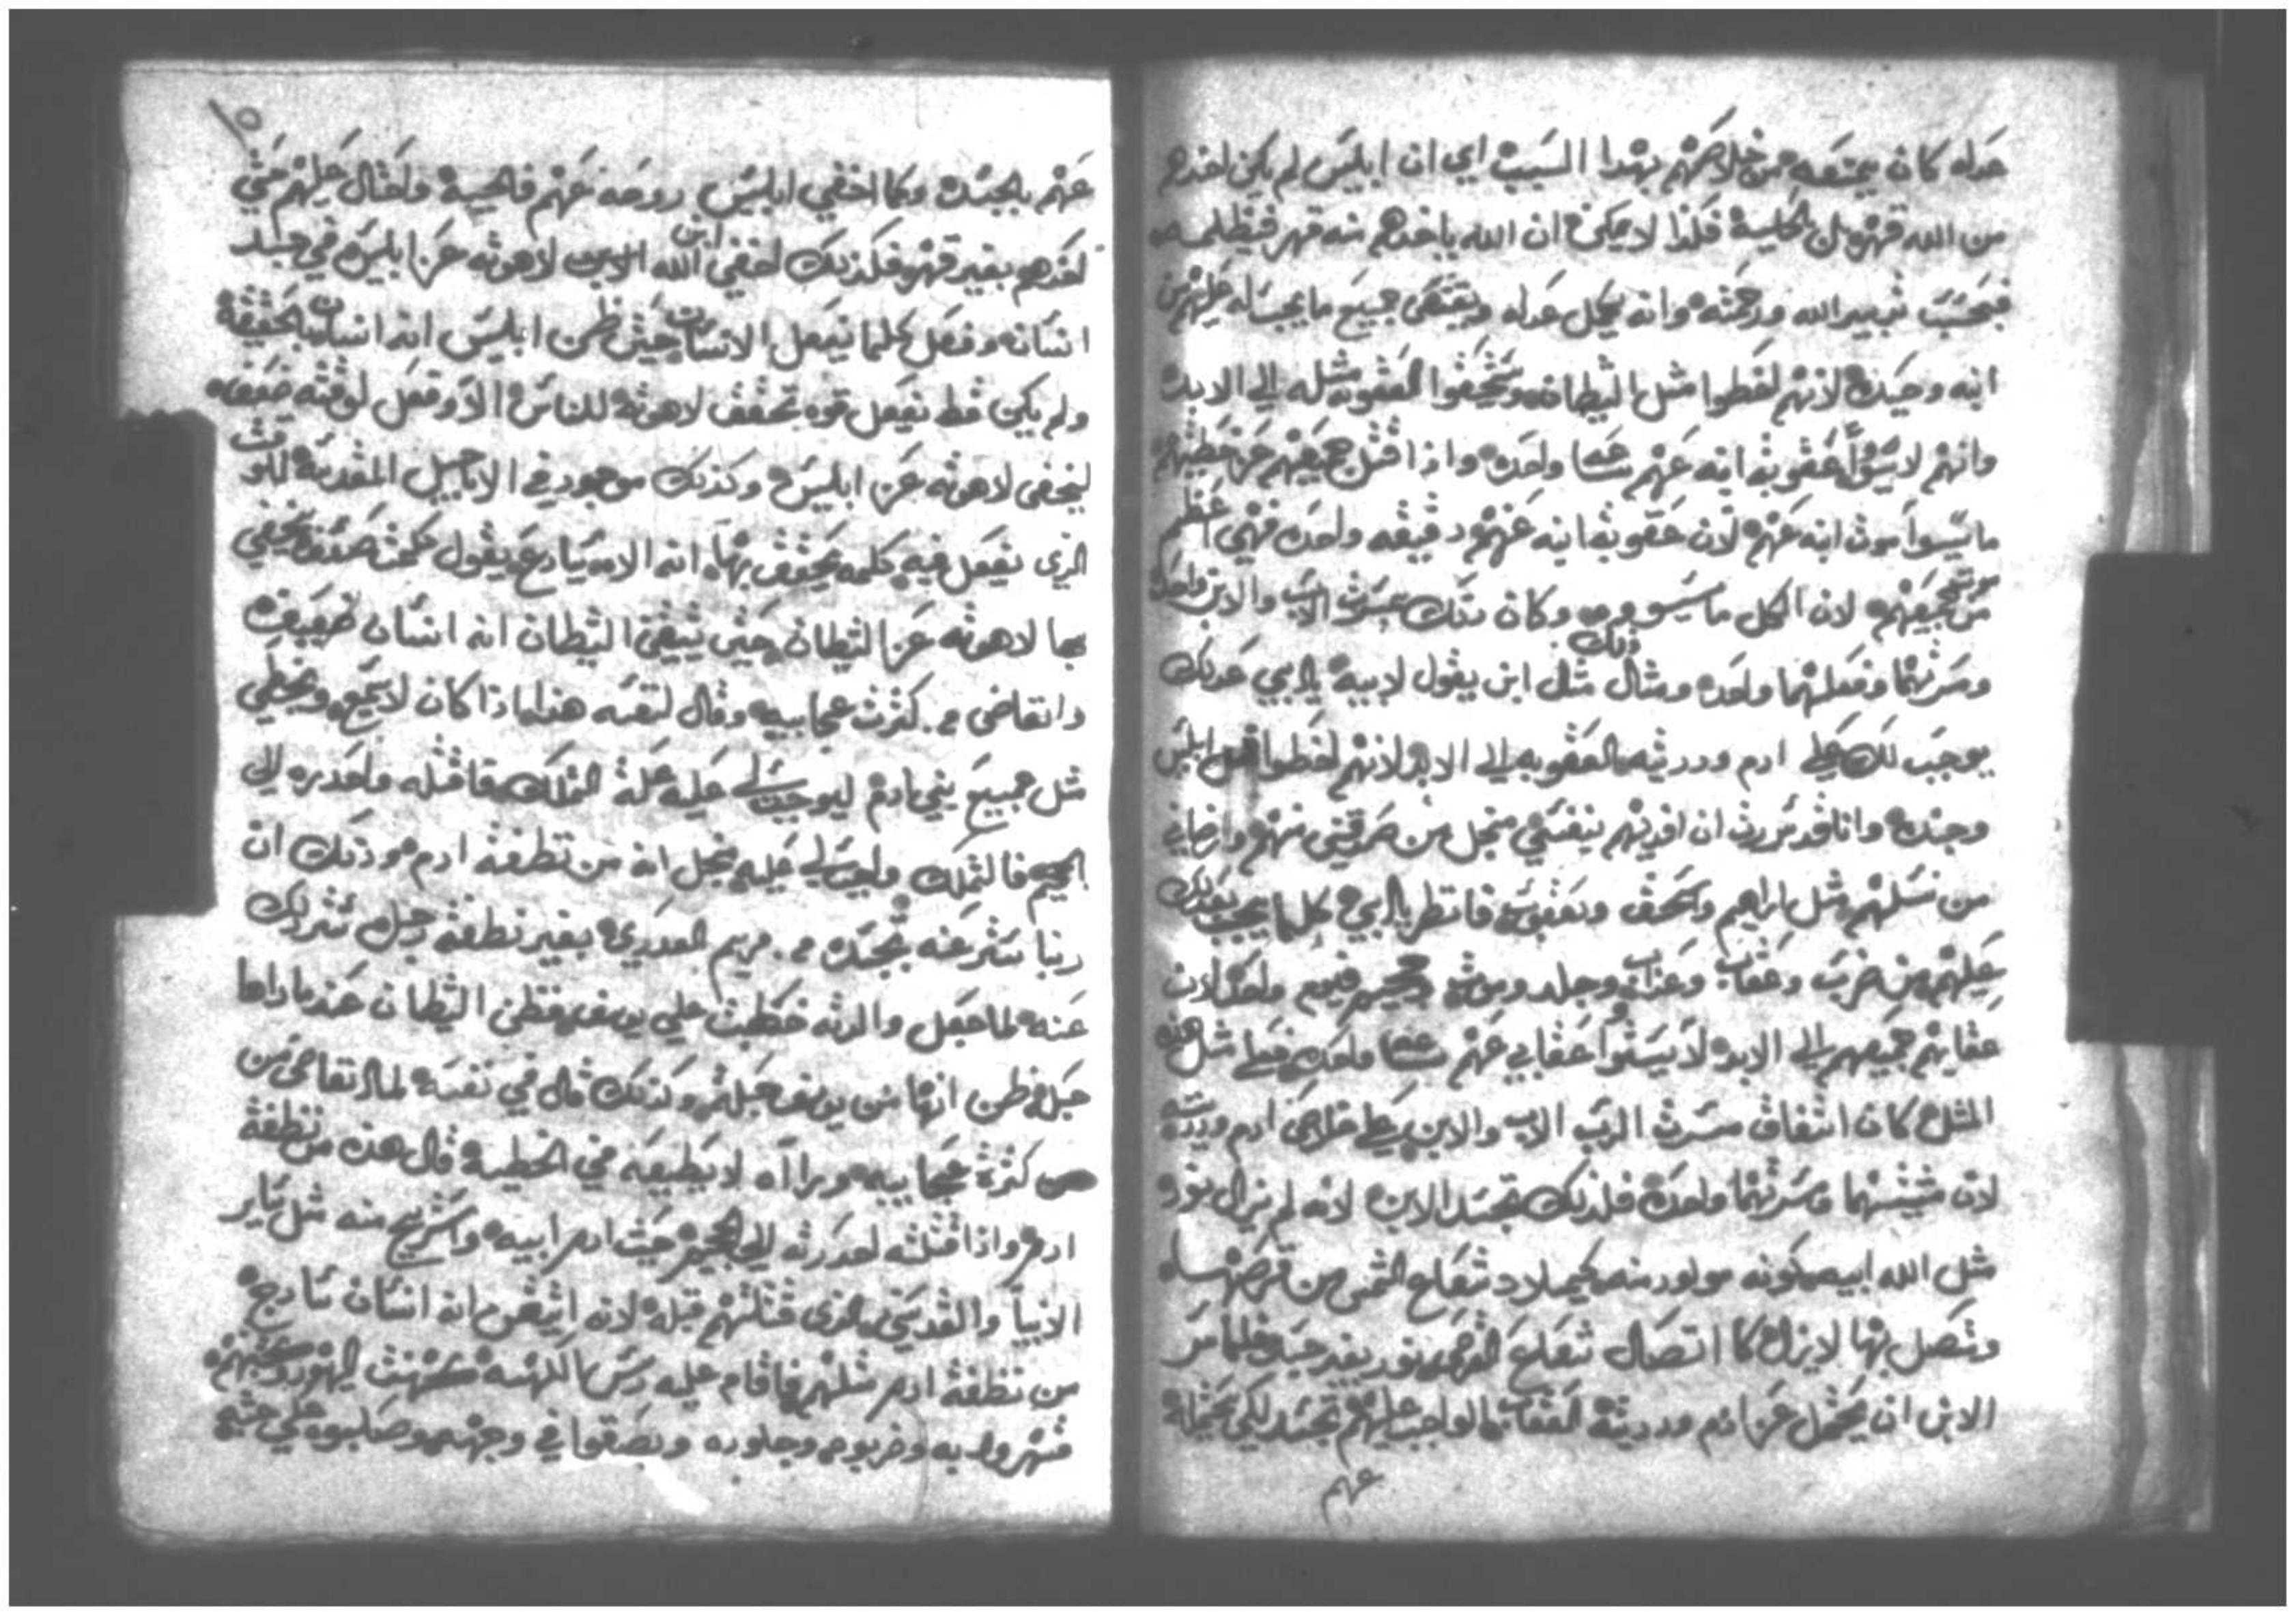 عدله كان يمنعه من خلاصهم بهدا السبب اي ان ابليس لم يكن اخدهم
من الله قهرًا بل بالحيلة فلذا لا يمكن ان الله ياخدهم منه قهر فيظلمه
فبحسب تدبير الله ورحمته وانه يكمل عدله ويقتضى جميع ما يجب له عليهم من
ابنه وحيده لانهم اخطوا مثل الشيطان ويستحقوا العقوبة مثله الي الابد
وانهم لا يسووا عقوبة ابنه عنهم ساعه واحده واذا قتل جميعهم عن خطيتهم
ما يسوا موت ابنه عنهم لان عقوبة ابنه عنهم دقيقه واحده فهي اعظم
من جميعهم لان الكل ما يسووه وكان بتلك مسرت الاب والابن واحده
ومسرتهما وفعلهما واحده ومثال ذلك مثل ابن يقول لابيه يا ابي عدلك
يوجب لك علي ادم ودريته العقوبه الي الابد لانهم اخطوا قبل ابليس
وجنده وانا قد سررت ان افديهم بنفسي منجل من صدقني منهم وارضاني
من نسلهم مثل ابراهيم واسحق ويعقوب فانظر يا ابي كلما يجب بعدلك
عليهم من ضرب وعقاب وعذاب وجلد وموت وجحيم فيوم واحد لان
عقابهم جميعهم الي الابد لا يسوا عقابي عنهم ساعه واحده فعلي مثل هذه
المثل كان اتفاق مسرت الرب الاب والابن علي خلاص ادم وبنيه
لان مشيئتهما ومسرتهما واحدة فلذلك تجسد الابن لانه لم يزل نوره
مثل الله ابيه بكونه مولود منه كميلاد شعاع الشمس من قرصها
وتتصل بها لا يزال كما اتصال شعاع القرص نور بغير جسد فلما سر
الابن ان يحتمل عن ادم ودريته العقاب الواجب عليهم تجسد لكي يحتمله
عنهم
عنهم بالجسد وكما اخفي ابليس روحه عنهم فالحية واحتال عليهم حتي
اخدهم بغير قهر فكذلك اخفي الله الابن ابن لاهوته عن ابليس في جسد
انسانه وفعل كلما يفعل الانسان حتي ظن ابليس انه انسان بالحقيقة
ولم يكن قط يفعل قوه تحقق لاهوته للناس الا وفعل لوقته ضعف
ليخفى لاهوته عن ابليس وكذلك موجود في الاناجيل المقدسة الموقت
الذي يفعل فيه كلمه يحقق بها انه الاه يارع يقول كمت يخفي
بها لاهوته عن الشيطان حتي تيقن الشيطان انه انسان ضعيف
واتغاضى من كثرت عجايبه وقال لنفسه هذا ماذا كان لا يتبع ويخطي
مثل جميع بني ادم ليوجب لي عليه علة الملك فاقتله واحدره الي
الجحيم فالملك واجب لي عليه منجل انه من نظفة ادم هو ذلك ان
ربنا ستر عنه تجسده من مريم العدري بغير نطفة رجل ستر ذلك
عنه لما جعل والدته خطبت علي يوسف فظن الشيطان عندما راها
حبله فظن انها من يوسف حبلت وكذلك قال في نفسه لما اتغاضى من
من كثرة عجايبه وراآه لا يطيعه في الخطية قال هذه من نظفة
ادم واذا قتلته احدرته الي الجحيم حيث ادم ابيه واستريح منه مثل ساير
الانبيا والقديسين الذي قتلتهم قبله لانه اتيقن انه انسان سادج
من نظفة ادم مثلهم فاقام عليه ريس الكهنه كهنت اليهود وكتبتهم
فشهروا به وضربوه وجلوده وبصقوا في وجهه وصلبوه علي خشبه